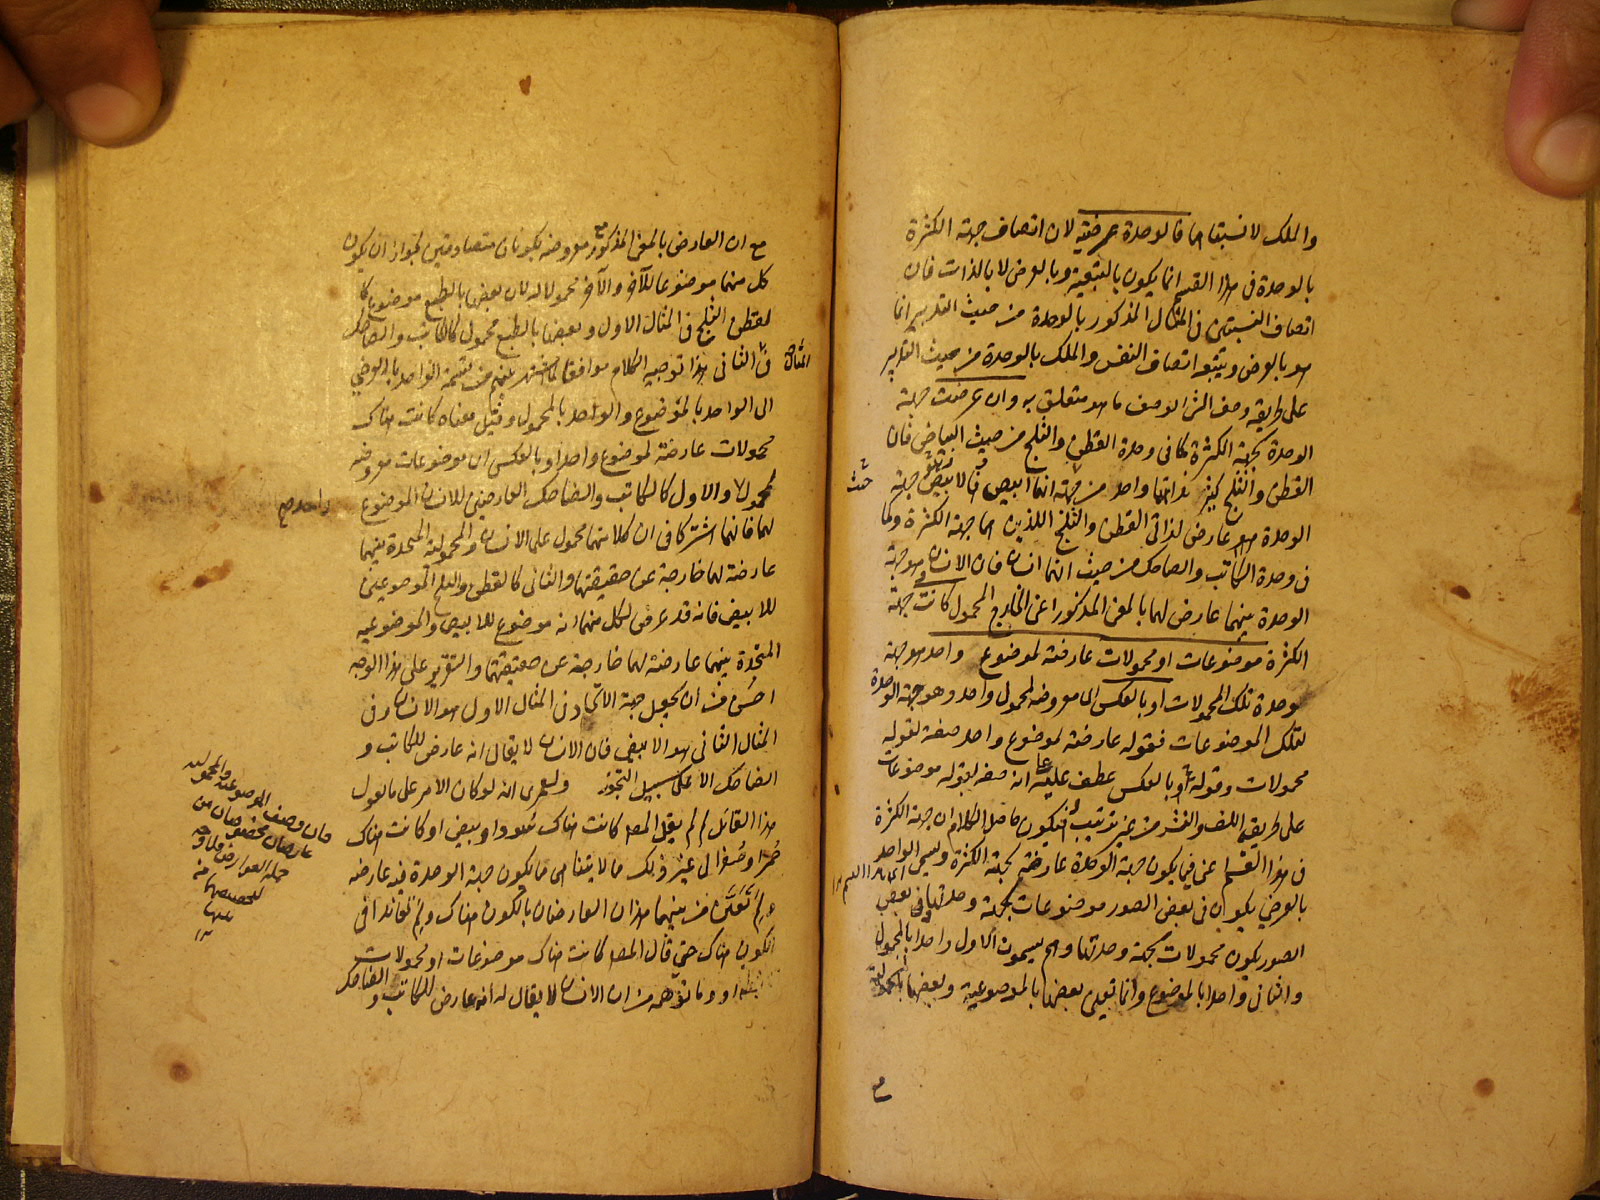 والملك لا نسبتاهما فالوحدة عرضية لان اتصاف جهة الكثرة
بالوحدة فى هذا القسم انما يكون بالتبعية وبالعرض لا بالذات فان
اتصاف النسبتين فى المثال المذكور بالوحدة من حيث التدبير انما
هو بالعرض ويتبعه اتصاف النفس والملك بالوحدة من حيث التدبير
على طريقة وصف الشئ بوصف ما هو متعلق به وان عرضت جهة
الوحدة لجهة الكثرة كما فى وحدة القطن والثلج من حيث البياض فان
القطن والثلج كثير بذاتهما واحد من جهة انهما ابيض فالابيض جهة
الوحدة هو عارض لذاتى القطن والثلج اللذين هما جهة الكثرة وكما
فى وحدة الكاتب والضاحك من حيث انهما انسان فان الانسان وهو جهة
الوحدة بينهما عارض لهما بالمعنى المذكور اعنى الخارج المحمول كانت جهة
الكثرة موضوعات او محمولات عارضة لموضوع واحد هو جهة
وحدة تلك المحمولات او بالعكس اى معروضه لمحمول واحد وهو جهة الوحدة
لتلك الموضوعات فقوله عارضة لموضوع واحد صفة لقوله
محمولات وقوله او بالعكس عطف عليه على انه صفة لقوله موضوعات
على طريق اللف والنشر من غير ترتيب فيكون حاصل الكلام ان جهة الكثرة
فى هذا القسم اعنى فيما يكون جهة الوحدة عارضة لجهة الكثرة ويسمى الواحد
بالعرض يكون فى بعض الصور موضوعات لجهة وحدتها وفى بعض
الصور يكون محمولات لجهة وحدتها وهم يسمون الاول واحدا بالمحمول
والثانى واحدا بالموضوع وانما تعين بعضها بالموضوعية وبعضها بالمحمولية
مع
مع ان العارض بالمعنى المذكور مع معروضه يكونان متصادقين لجواز ان يكون
كل منهما موضوعا للآخر والآخر محمولا له لان بعضها بالطبع موضوع كا
لقطن والثلج فى المثال الاول وبعضها بالطبع محمول كالكاتب والضاحك
فى الثانى هذا توجيه الكلام موافقا لما اشتهر بينهم من قسمة الواحد بالعرض
الى الواحد بالموضوع والواحد بالمحمول وقيل معناه كانت هناك
محمولات عارضة لموضوع واحد او بالعكس اى موضوعات معروضه
لمحمول والاول كالكاتب والضاحك العارضين للانسان الموضوع
واحد صح
لهما فانهما اشتركا فى ان كلا منهما محمول على الانسان والمحمولية المتحدة بينهما
عارضة لهما خارجة عن حقيقتهما والثانى كالقطن والثلج الموضوعين
للابيض فانه قد عرض لكل منهما انه موضوع للابيض والموضوعية
المتحدة بينهما عارضة لهما خارجة عن حقيقتهما والتقرير على هذا الوجه
احسن من ان يجعل جهة الاتحاد فى المثال الاول هو الانسان وفى
المثال الثانى هو الابيض فان الانسان لا يقال انه عارض للكاتب و
الضاحك الا على سبيل التجوز ولعمرى انه لو كان الامر على ما يقول
هذا القائل لم لم يقل المصـ كانت هناك سود او بيض او كانت هناك
حمرا وصفرا الى غير ذلك مما لا يتناهى ما يكون جهة الوحدة فيه عارضه
ولم تعين من بينهما هذان العارضان بالكون هناك ولم تعاندا فى
الكون هناك حتى قال المصـ كانت هناك موضوعات او محمولات
بلفظة او وما توهمه من ان الانسان لا يقال له انه عارض للكاتب والضاحك
فان وصف الموضوعية والمحمولية
عارضان مخصوصان من
جملة العوارض فلا وجه
لتخصيصهما
منه